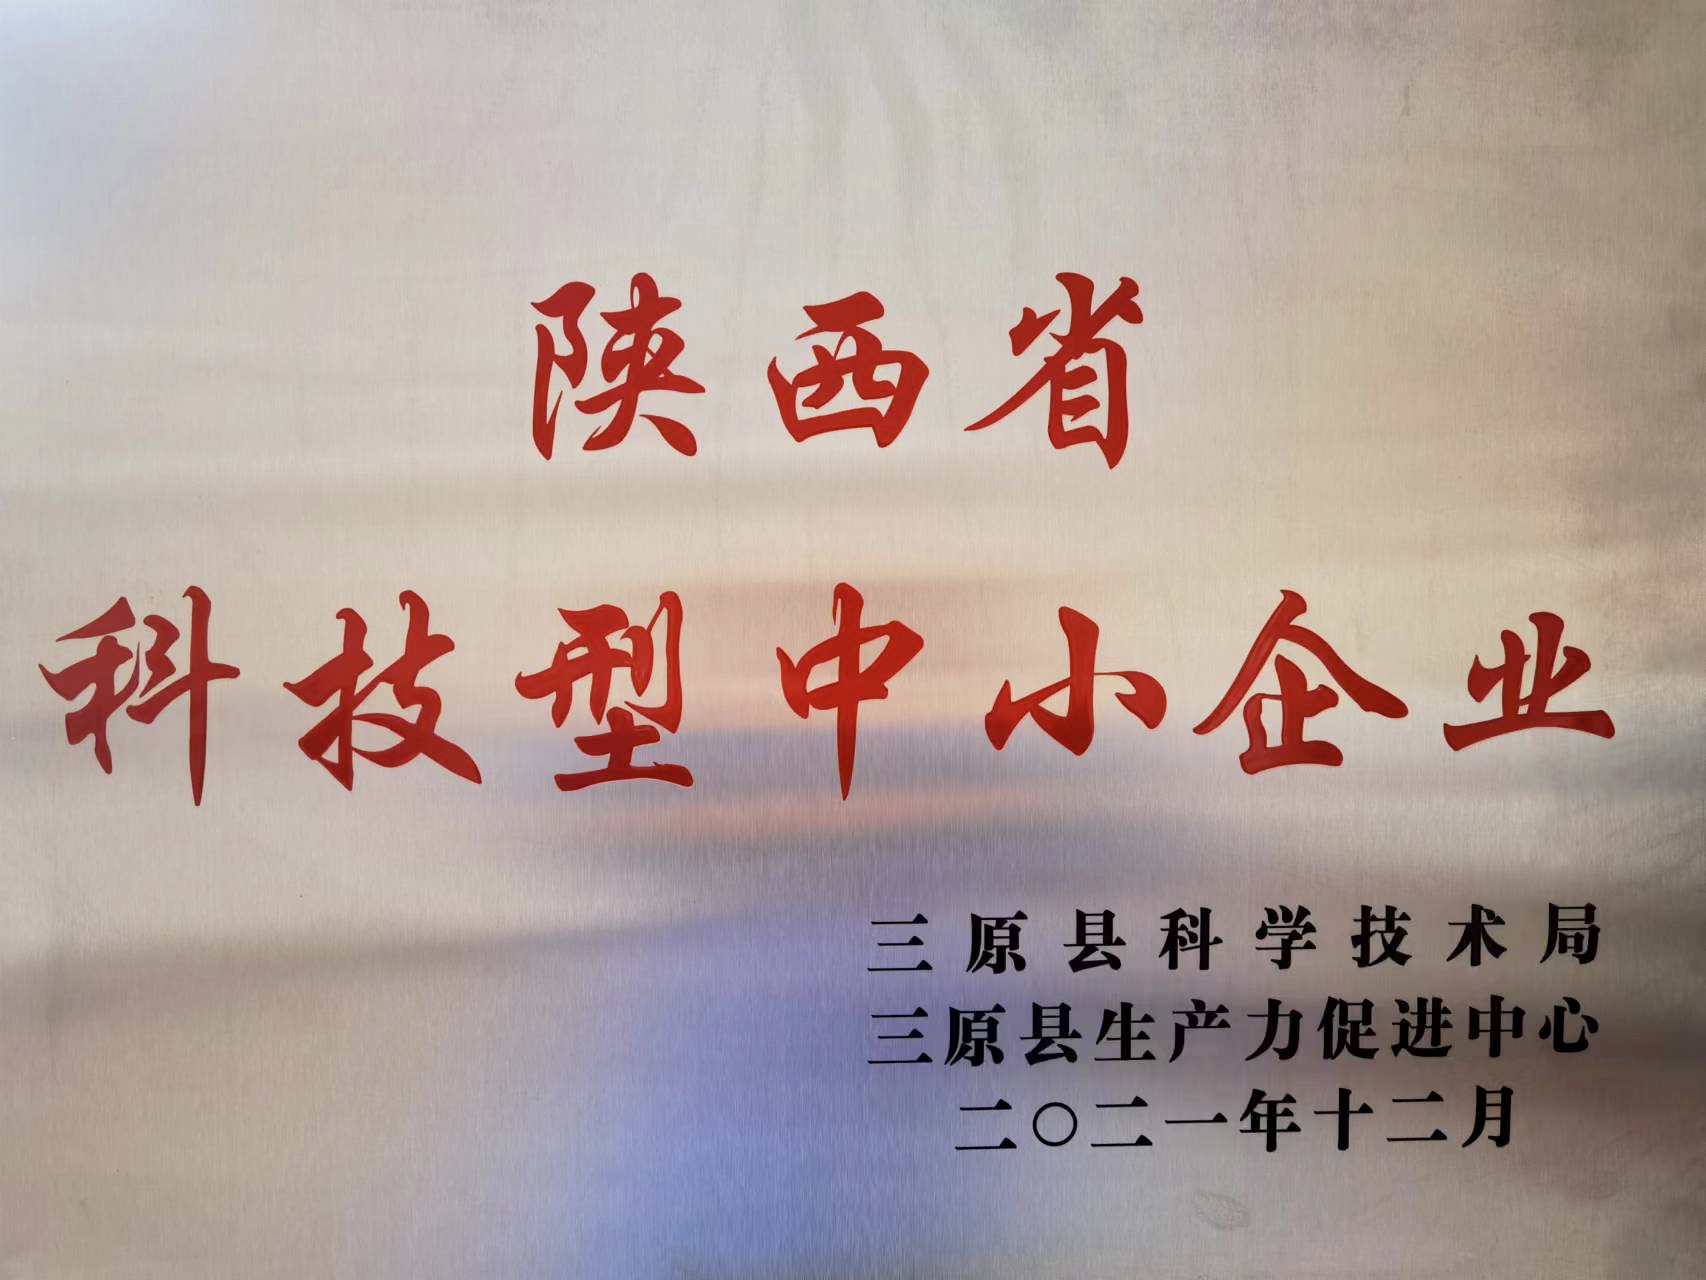 陕西省
科技型中小企业
三原县科学技术局
三原县生产力促进中心
二〇二一年十二月